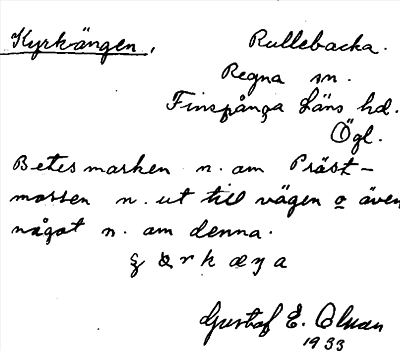 Kyrkängen,
Rullebacka.
Regna sn.
Finspånga Läns hd.
Ögl.
Betesmarken n. om Präst-
mossen n. ut till vägen o även
något n. om denna.
Gustaf E. Olson
1933